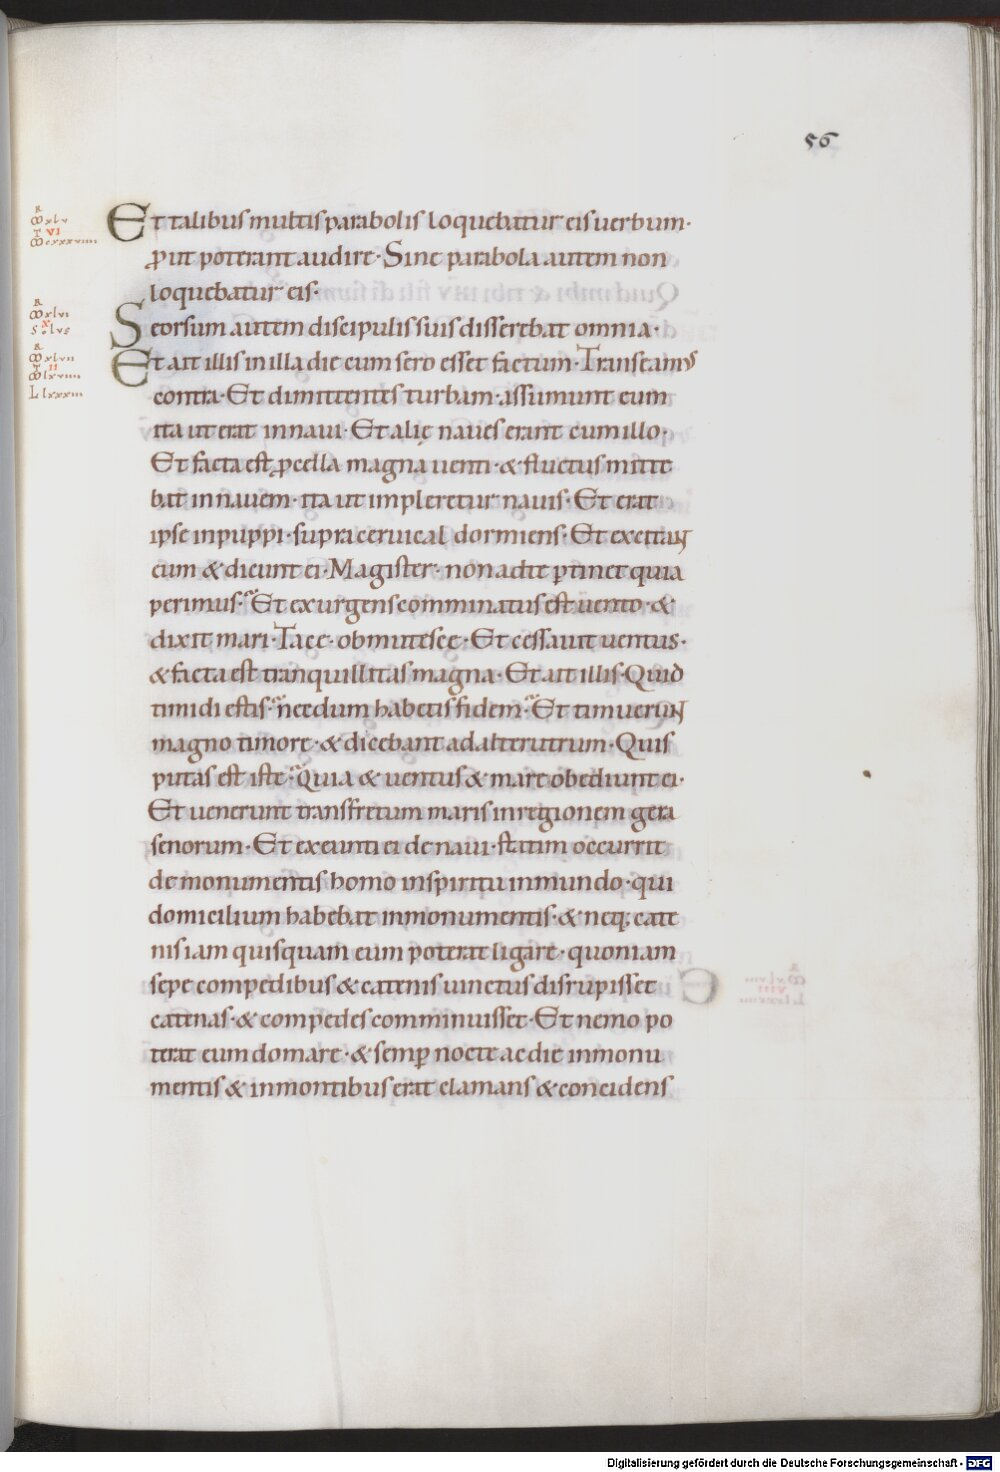 56
Et talibus multis parabolis loquebatur eis uerbum·
ꝓut poterant audire· Sine parabola autem non
loquebatur eis·
Seorsum autem discipulis suis disserebat omnia·
Et ait illis in illa die cum sero esset factum· Transeamꝰ
contra· Et dimittentes turbam· assumunt eum
ita ut erat in naui· Et alię naues erant cum illo·
Et facta est ꝓcella magna uenti· & fluctus mitte
bat in nauem· ita ut impleretur nauis· Et erat
ipse in puppi· supra ceruical dormiens· Et excitaɳ
eum & dicunt ei· Magister· non ad te ꝑtinet quia
perimus· Et exurgens comminatus est uento· &
dixit mari· Tace· obmutesce· Et cessauit uentus·
& facta est tranquillitas magna· Et ait illis· Quid
timidi estis· necdum habetis fidem· Et timueruɳ
magno timore· & dicebant ad alterutrum· Quis
putas est iste· Quia & uentus & mare obediunt ei·
Et uenerunt transfretum maris in regionem gera
senorum· Et exeunti ei de naui· statim occurrit
de monumentis homo in spiritu inmundo· qui
domicilium habebat in monumentis· & neq; cate
nis iam quisquam eum poterat ligare· quoniam
sepe compedibus & catenis uinctus disrupisset
catenas· & compedes comminuisset· Et nemo po
terat eum domare· & semꝑ nocte ac die in monu
mentis & in montibus erat clamans & concidens
Digitalisierung gefördert durch die Deutsche Forschungsgemeinschaft - DFG